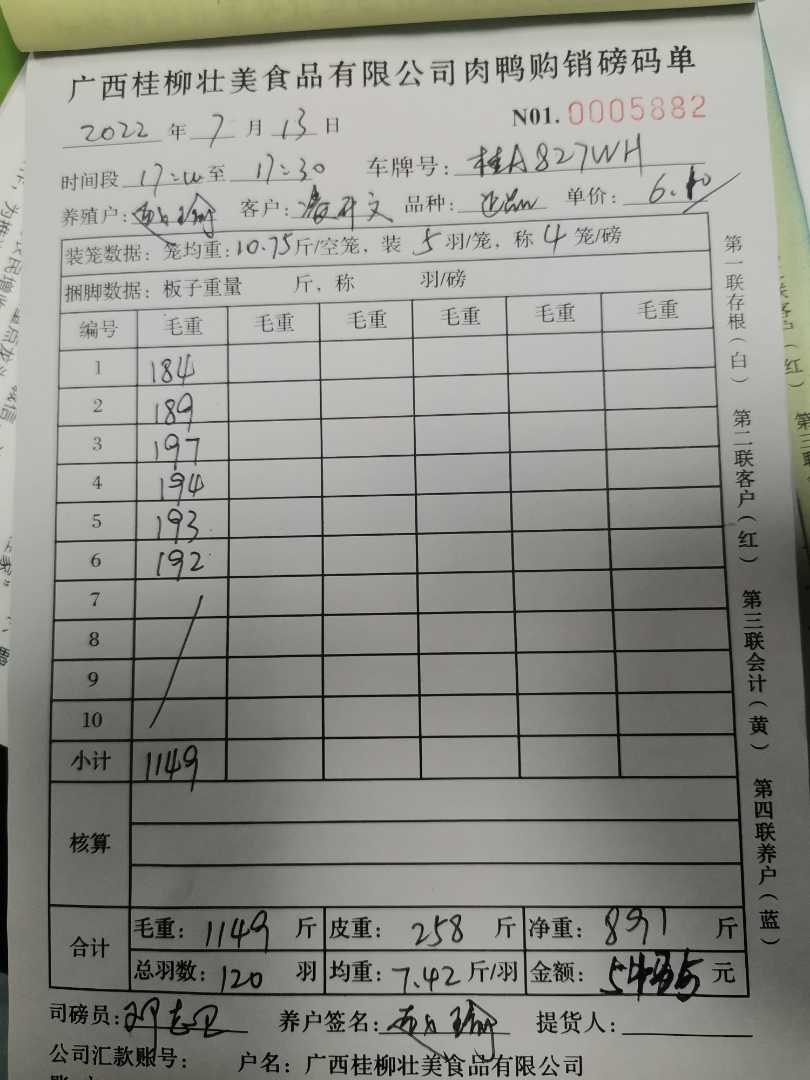 广西桂柳壮美食品有限公司肉鸭购销磅码单
2022 年 7 月 13 日 N01. 0005882
时间段 至 17:30 车牌号: 桂A827WH
养殖户: 客户: 品种: 单价: 6.10
装笼数据: 笼均重: 10.75 斤/空笼, 装 5 羽/笼, 称 4 笼/磅
捆脚数据: 板子重量 斤, 称 羽/磅
编号 毛重 毛重 毛重 毛重 毛重 毛重
1 184
2 189
3 197
4 194
5 193
6 192
7
8
9
10
小计 1149
核算
合计 毛重: 1149 斤 皮重: 258 斤 净重: 891 斤
总羽数: 120 羽 均重: 7.42 斤/羽 金额: 元
司磅员: 养户签名: 提货人:
公司汇款账号: 户名: 广西桂柳壮美食品有限公司
第一联存根(白) 第二联客户(红) 第三联会计(黄) 第四联养户(蓝)